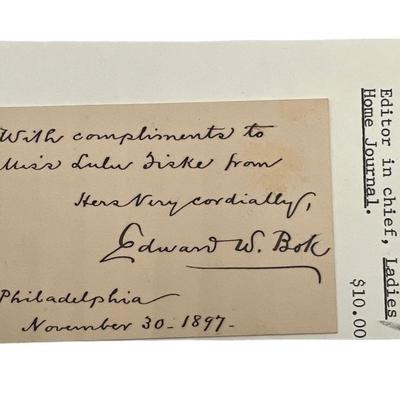 With compliments to
Miss Lulu Fiske from
Hers Very cordially,
Edward W. Bok
Philadelphia
November 30-1897-
Editor in chief, Ladies
Home Journal.
$10.00